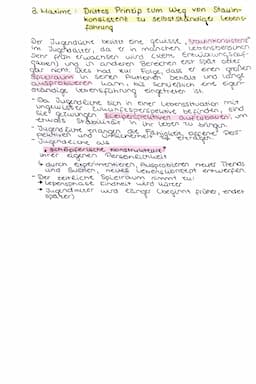 3. Maxime: Drittes Prinzip zum Weg von Statuin-
konsistent zu selbstständige Lebens-
führung
Der Jugendliche besitzt eine gewisse "Statusinkonsistenz"
im Jugendalter, da er in manchen Lebensbereichen
sehr früh erwachsen wird (siehe Entwicklungsauf-
gaben) und in anderen Bereichen erst später oder
gar nicht. Dies hat zur Folge, dass er einen großen
Spielraum in seinen Punkten besitzt und lange
ausprobieren kann, bis schließlich eine eigen-
ständige Lebensführung eingetreten ist.
- Da Jugendliche sich in einer Lebenssituation mit
ungewisser Zukunftsperspektive befinden, sind
sie gezwungen Eigenperspektiven aufzubauen, um
etwas Stabilität in ihr Leben zu bringen.
- Jugendliche erlangen die Fähigkeit, offene Pers-
pektiven und Unsicherheit zu ertragen
- Jugendliche als
"schöpferische Konstrukteure"
ihrer eigenen Persönlichkeit
↳ durch Experimentieren, Ausprobieren neuer Trends
und suchen, neues Lebenskonzept entwerfen
- Der zeitliche Spielraum nimmt zu:
→ Lebensphase Kindheit wird kürzer
→ Jugendalter wird länger (beginnt früher, endet
später)